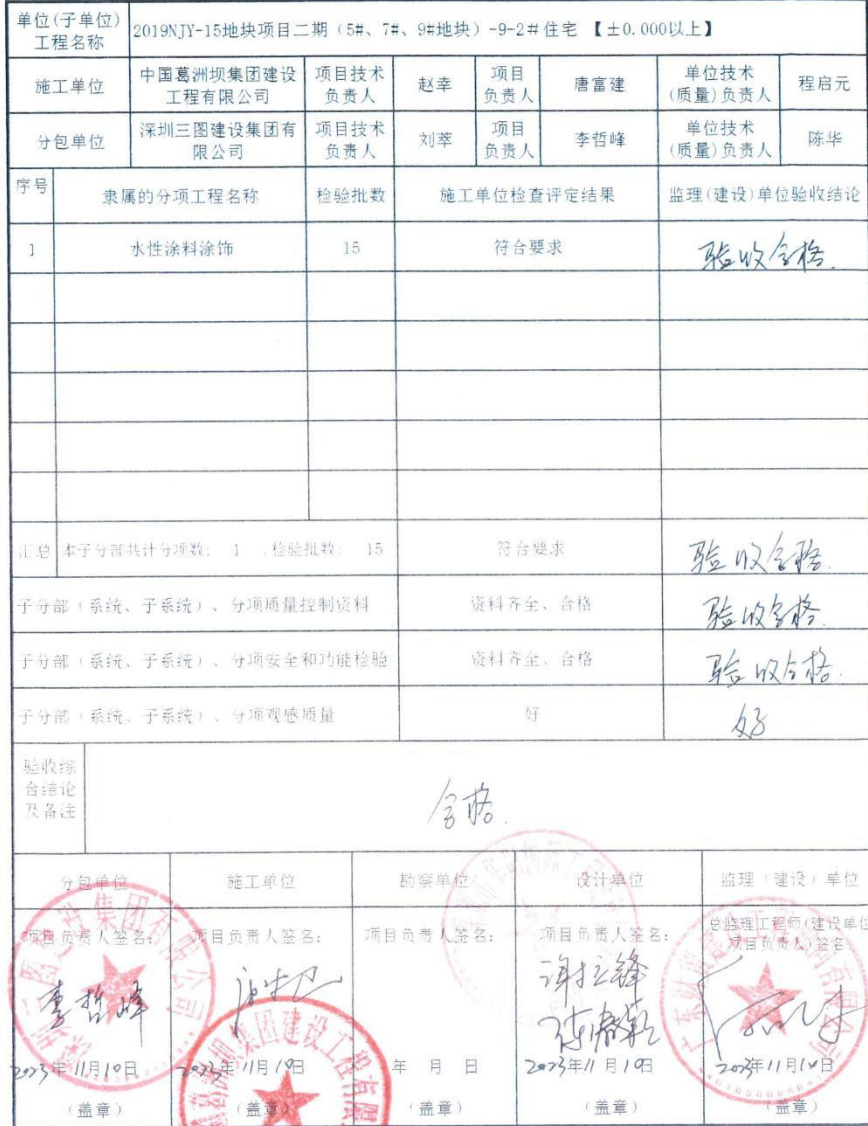 单位(子单位)
工程名称
2019NJY-15地块项目二期（5#、7#、9#地块）-9-2#住宅 【±0.000以上】
施工单位
中国葛洲坝集团建设
工程有限公司
项目技术
负责人
赵幸
项目
负责人
唐富建
单位技术
(质量)负责人
程启元
分包单位
深圳三图建设集团有
限公司
项目技术
负责人
刘萃
项目
负责人
李哲峰
单位技术
(质量)负责人
陈华
序号
隶属的分项工程名称
检验批数
施工单位检查评定结果
监理(建设)单位验收结论
1
水性涂料涂饰
15
符合要求
验收合格.
汇总
本子分部共计分项数: 1 ,检验批数: 15
符合要求
验收合格.
子分部（系统、子系统）、分项质量控制资料
资料齐全、合格
验收合格.
子分部（系统、子系统）、分项安全和功能检验
资料齐全、合格
验收合格.
子分部（系统、子系统）、分项观感质量
好
好
验收综
合结论
及备注
合格.
分包单位
施工单位
勘察单位
设计单位
监理（建设）单位
项目负责人签名:
项目负责人签名:
项目负责人签名:
项目负责人签名:
总监理工程师(建设单位
项目负责人)签名
李哲峰
2023年11月10日
2023年11月10日
年 月 日
2023年11月10日
2023年11月10日
（盖章）
（盖章）
（盖章）
（盖章）
（盖章）